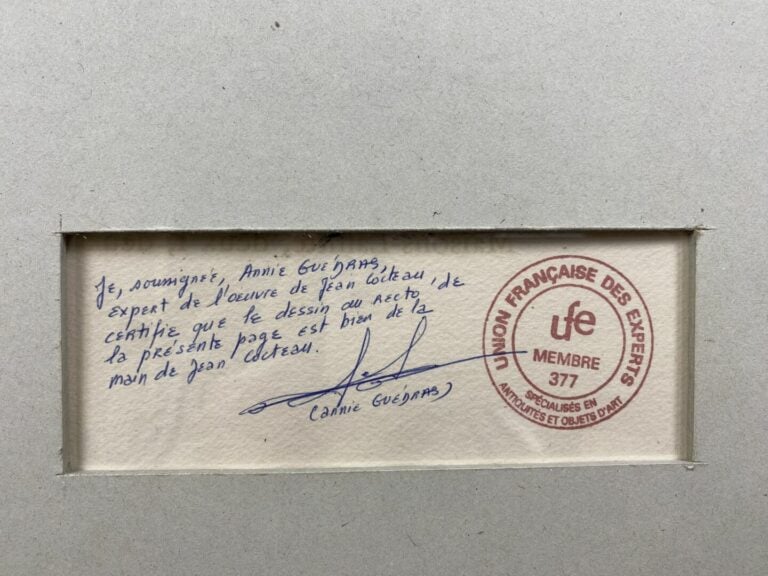 Je, soussignée, Annie GUÉDRAS,
expert de l'œuvre de Jean Cocteau,
certifie que le dessin au recto de
la présente page est bien de la
main de Jean Cocteau.
(annie GUÉDRAS)
UNION FRANÇAISE DES EXPERTS
ufe
MEMBRE
377
SPÉCIALISÉS EN
ANTIQUITÉS ET OBJETS D'ART